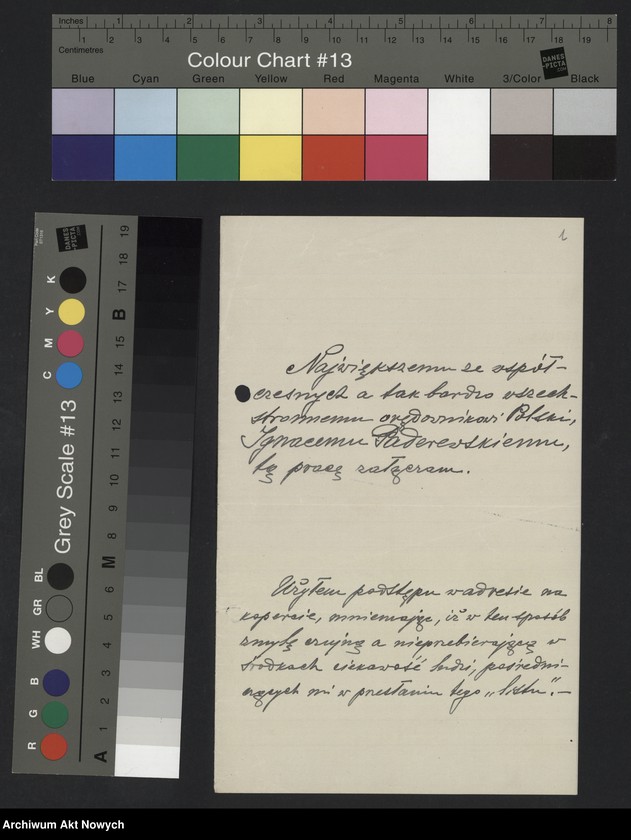 Inches 1 2 3 4 5 6 7 8
Centimetres 1 2 3 4 5 6 7 8 9 10 11 12 13 14 15 16 17 18 19
Colour Chart #13
DANES PICTA .COM
Blue Cyan Green Yellow Red Magenta White 3/Color Black
Grey Scale #13
DANES PICTA .COM
K Y M C
BL GR WH
B G R
A 1 2 3 4 5 6 M 8 9 10 11 12 13 14 15 B 17 18 19
1
Największemu ze współ-
czesnych a tak bardzo wszech-
stronnemu orędownikowi Polski,
Ignacemu Paderewskiemu,
tę pracę załączam.
Użyłem podstępu w adresie na
kopercie, mniemając, iż w ten sposób
zmylę czujną a nieprzebierającą w
środkach ciekawość ludzi, pośredni-
czących mi w przesłaniu tego „listu”.—
Archiwum Akt Nowych